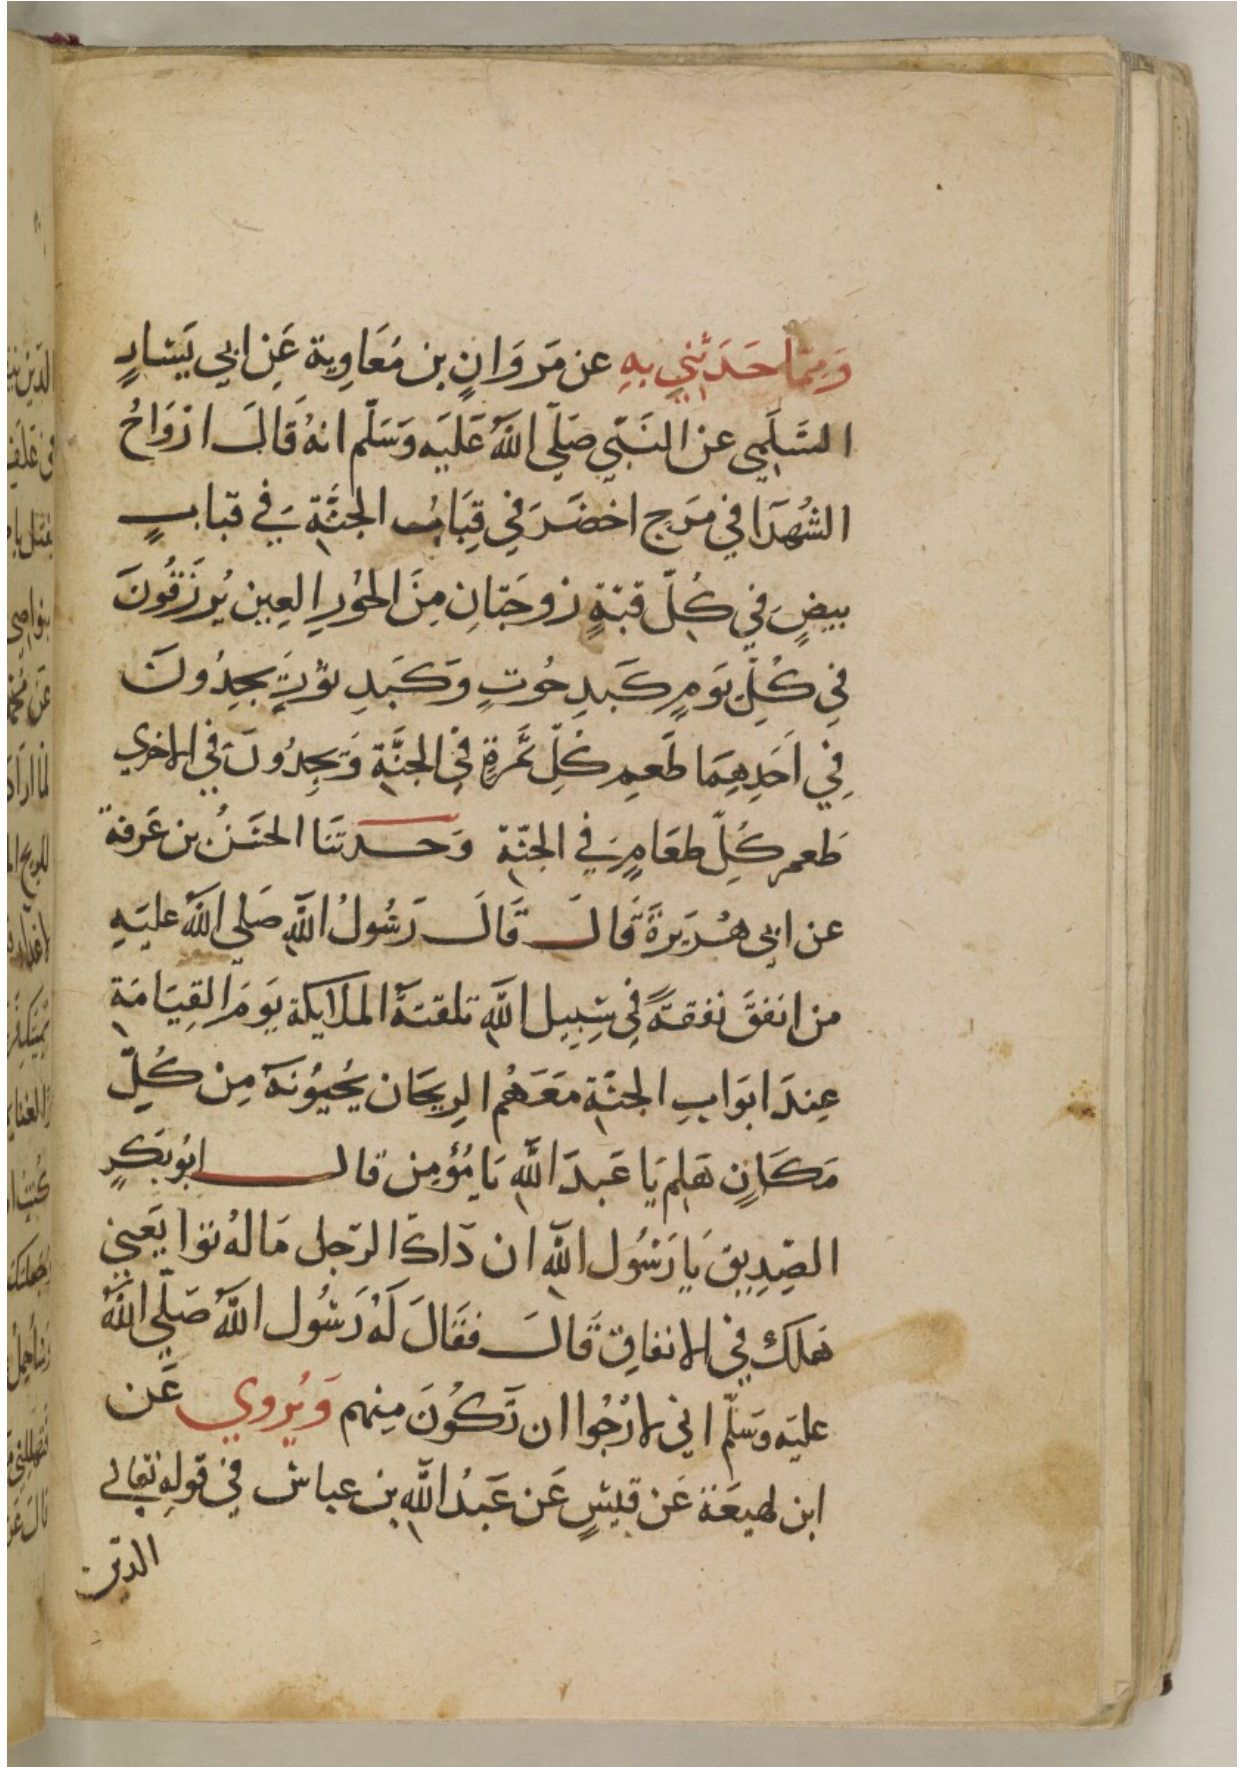 وَمِمَّا حَدَثَنِي بِهِ عن مَروَانٍ بن مُعَاوِية عَن ابي يَسَارٍ
السَّلَمِي عن النَبّي صَلّي اللَّهُ عَلَيه وَسَلّم انهُ قَالَ ازوَاحُ
الشُهدَا في مَرج اخضَرَ في قِبَابُ الجنّةِ في قبابٍ
بيضٍ في كُلّ قبّةٍ زوجَتانِ مِنَ الحُورِ العِين يُرزَقُونَ
في كُلِّ يَومٍ كَبدِ حُوتٍ وَكَبَدِ ثورٍ يجِدُونَ
في اَحَدِهِمَا طَعم كُلِّ ثَمرةٍ في الجنَّةِ وَيَجِدُونَ في الاخري
طَعم كُلِّ طعَامٍ في الجنّةِ وَحدثَنا الحسَنُ بن عَرفة
عن ابي هُرَيرةَ قَالَ قَالَ رَسُولُ اللَّهِ صَلي اللَّهُ عليَهِ
من انفقَ نفقةً في سَبِيل اللَّهِ تلقتهُ الملَايكة يَومَ القِيَامَةِ
عِندَ ابوَابِ الجنّةِ مَعَهُم الرِيحَان يُحيوُنهُ مِن كُلِّ
مَكَانٍ هَلم يَا عَبدَ اللَّهِ يَا مُؤمِن قال ابُو بَكرٍ
الصِّدِيق يَا رَسُول اللَّهِ ان ذَاكَ الرّجل مَا لهُ توا يَعني
هَلَك في الانفاقِ قَالَ فقَالَ لَهُ رَسُول اللَّهُ صَلّي اللَّهُ
عليَه وَسَلّم اني لارْجُوا ان تَكُونَ مِنهم وَيُروي عَن
ابن لهيعَة عَن قيسٍ عَن عَبدُ اللَّهِ بن عباس في قولِهِ تعالي
الدين